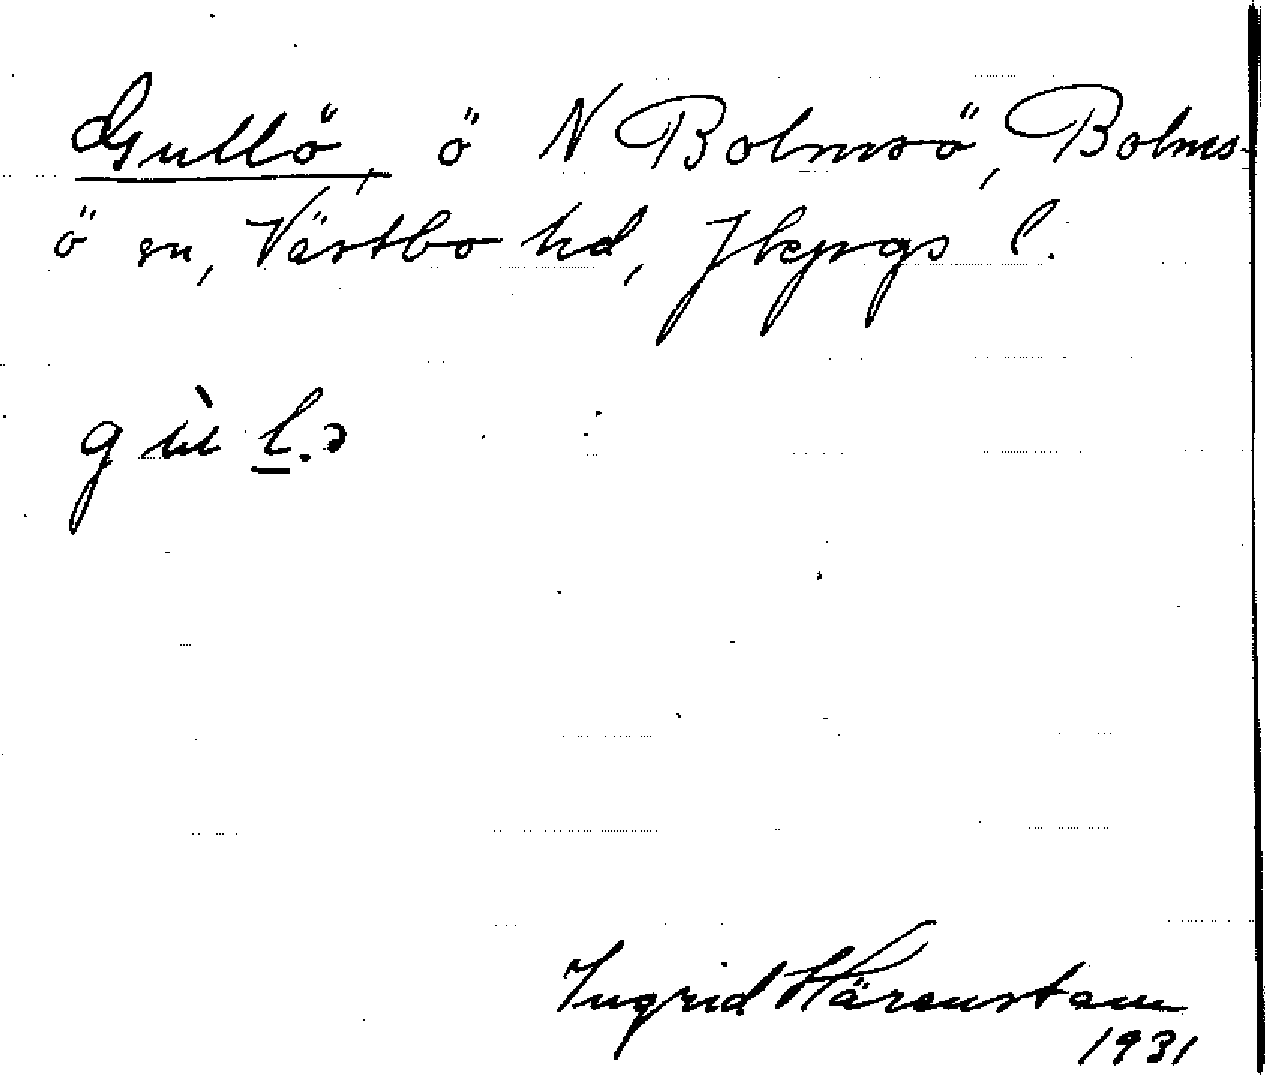 Gullö, ö N Bolmsö, Bolms-
ö sn, Västbo hd, Jkpgs l.
gùl.ə
Ingrid Härenstam
1931